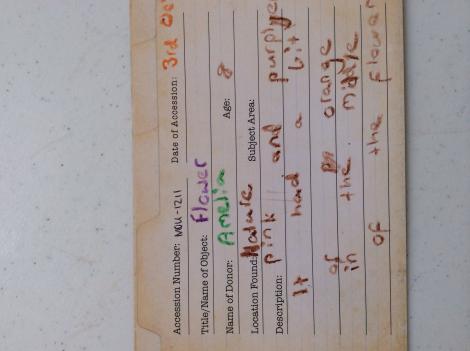 Accession Number: MOU-1211 Date of Accession: 3rd
Title/Name of Object: Flower
Name of Donor: Amelia Age: 8
Location Found: Nature Subject Area:
Description: pink and purplyer
It had a bit
of orange
in the middle
of the flower